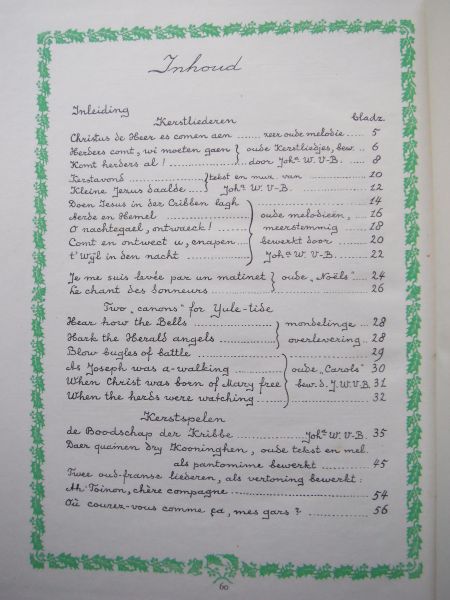 Inhoud
Inleiding
Kerstliederen bladz.
Christus de Heer es comen aen ...... zeer oude melodie ..... 5
Herders comt, wi moeten gaen } oude Kerstliedjes, bew. .. 6
Komt herders al! .................. door Joha. W. V-B. .... 8
Kerstavond ..................... } tekst en muz. van ............ 10
Kleine Jezus daalde .......... Joha. W. V-B. ............ 12
Doen Jesus in der Cribben lagh ................. 14
Aerde en Hemel ................ oude melodieën, ... 16
O nachtegael, ontwaeck! ...... meerstemmig ..... 18
Comt en ontwect u, cnapen. bewerkt door ..... 20
t' Wijl in den nacht ............ Joha. W. V-B. .... 22
Je me suis levée par un matinet } oude „Noëls" ..... 24
Le chant des sonneurs ............... 26
Two „canons" for Yule-tide
Hear how the Bells ............... } mondelinge ... 28
Hark the Herald angels ........... overlevering ... 28
Blow bugles of battle ...................... 29
As Joseph was a-walking ........ oude „Carols" 30
When Christ was born of Mary free bew. d. J.W.V.B. 31
When the herds were watching ............ 32
Kerstspelen
de Boodschap der Kribbe ......... Joha. W. V-B. ... 35
Daer quamen dry Kooninghen, oude tekst en mel.
als pantomime bewerkt ....... 45
Twee oud-franse liederen, als vertoning bewerkt:
Ah! Toinon, chère compagne ...................... 54
Où courez-vous comme ça, mes gars? ............ 56
60